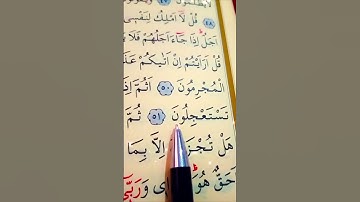 ٤٨ قُلْ لَٓا اَمْلِكُ لِنَفْسٖى
اَجَلٌ اِذَا جَٓاءَ اَجَلُهُمْ فَلَا
قُلْ اَرَاَيْتُمْ اِنْ اَتٰيكُمْ
الْمُجْرِمُونَ ٥٠ اَثُمَّ
تَسْتَعْجِلُونَ ٥١ ثُمَّ
هَلْ اِلَّا بِمَا
اَحَقٌّ هُوَ وَرَبّٖى